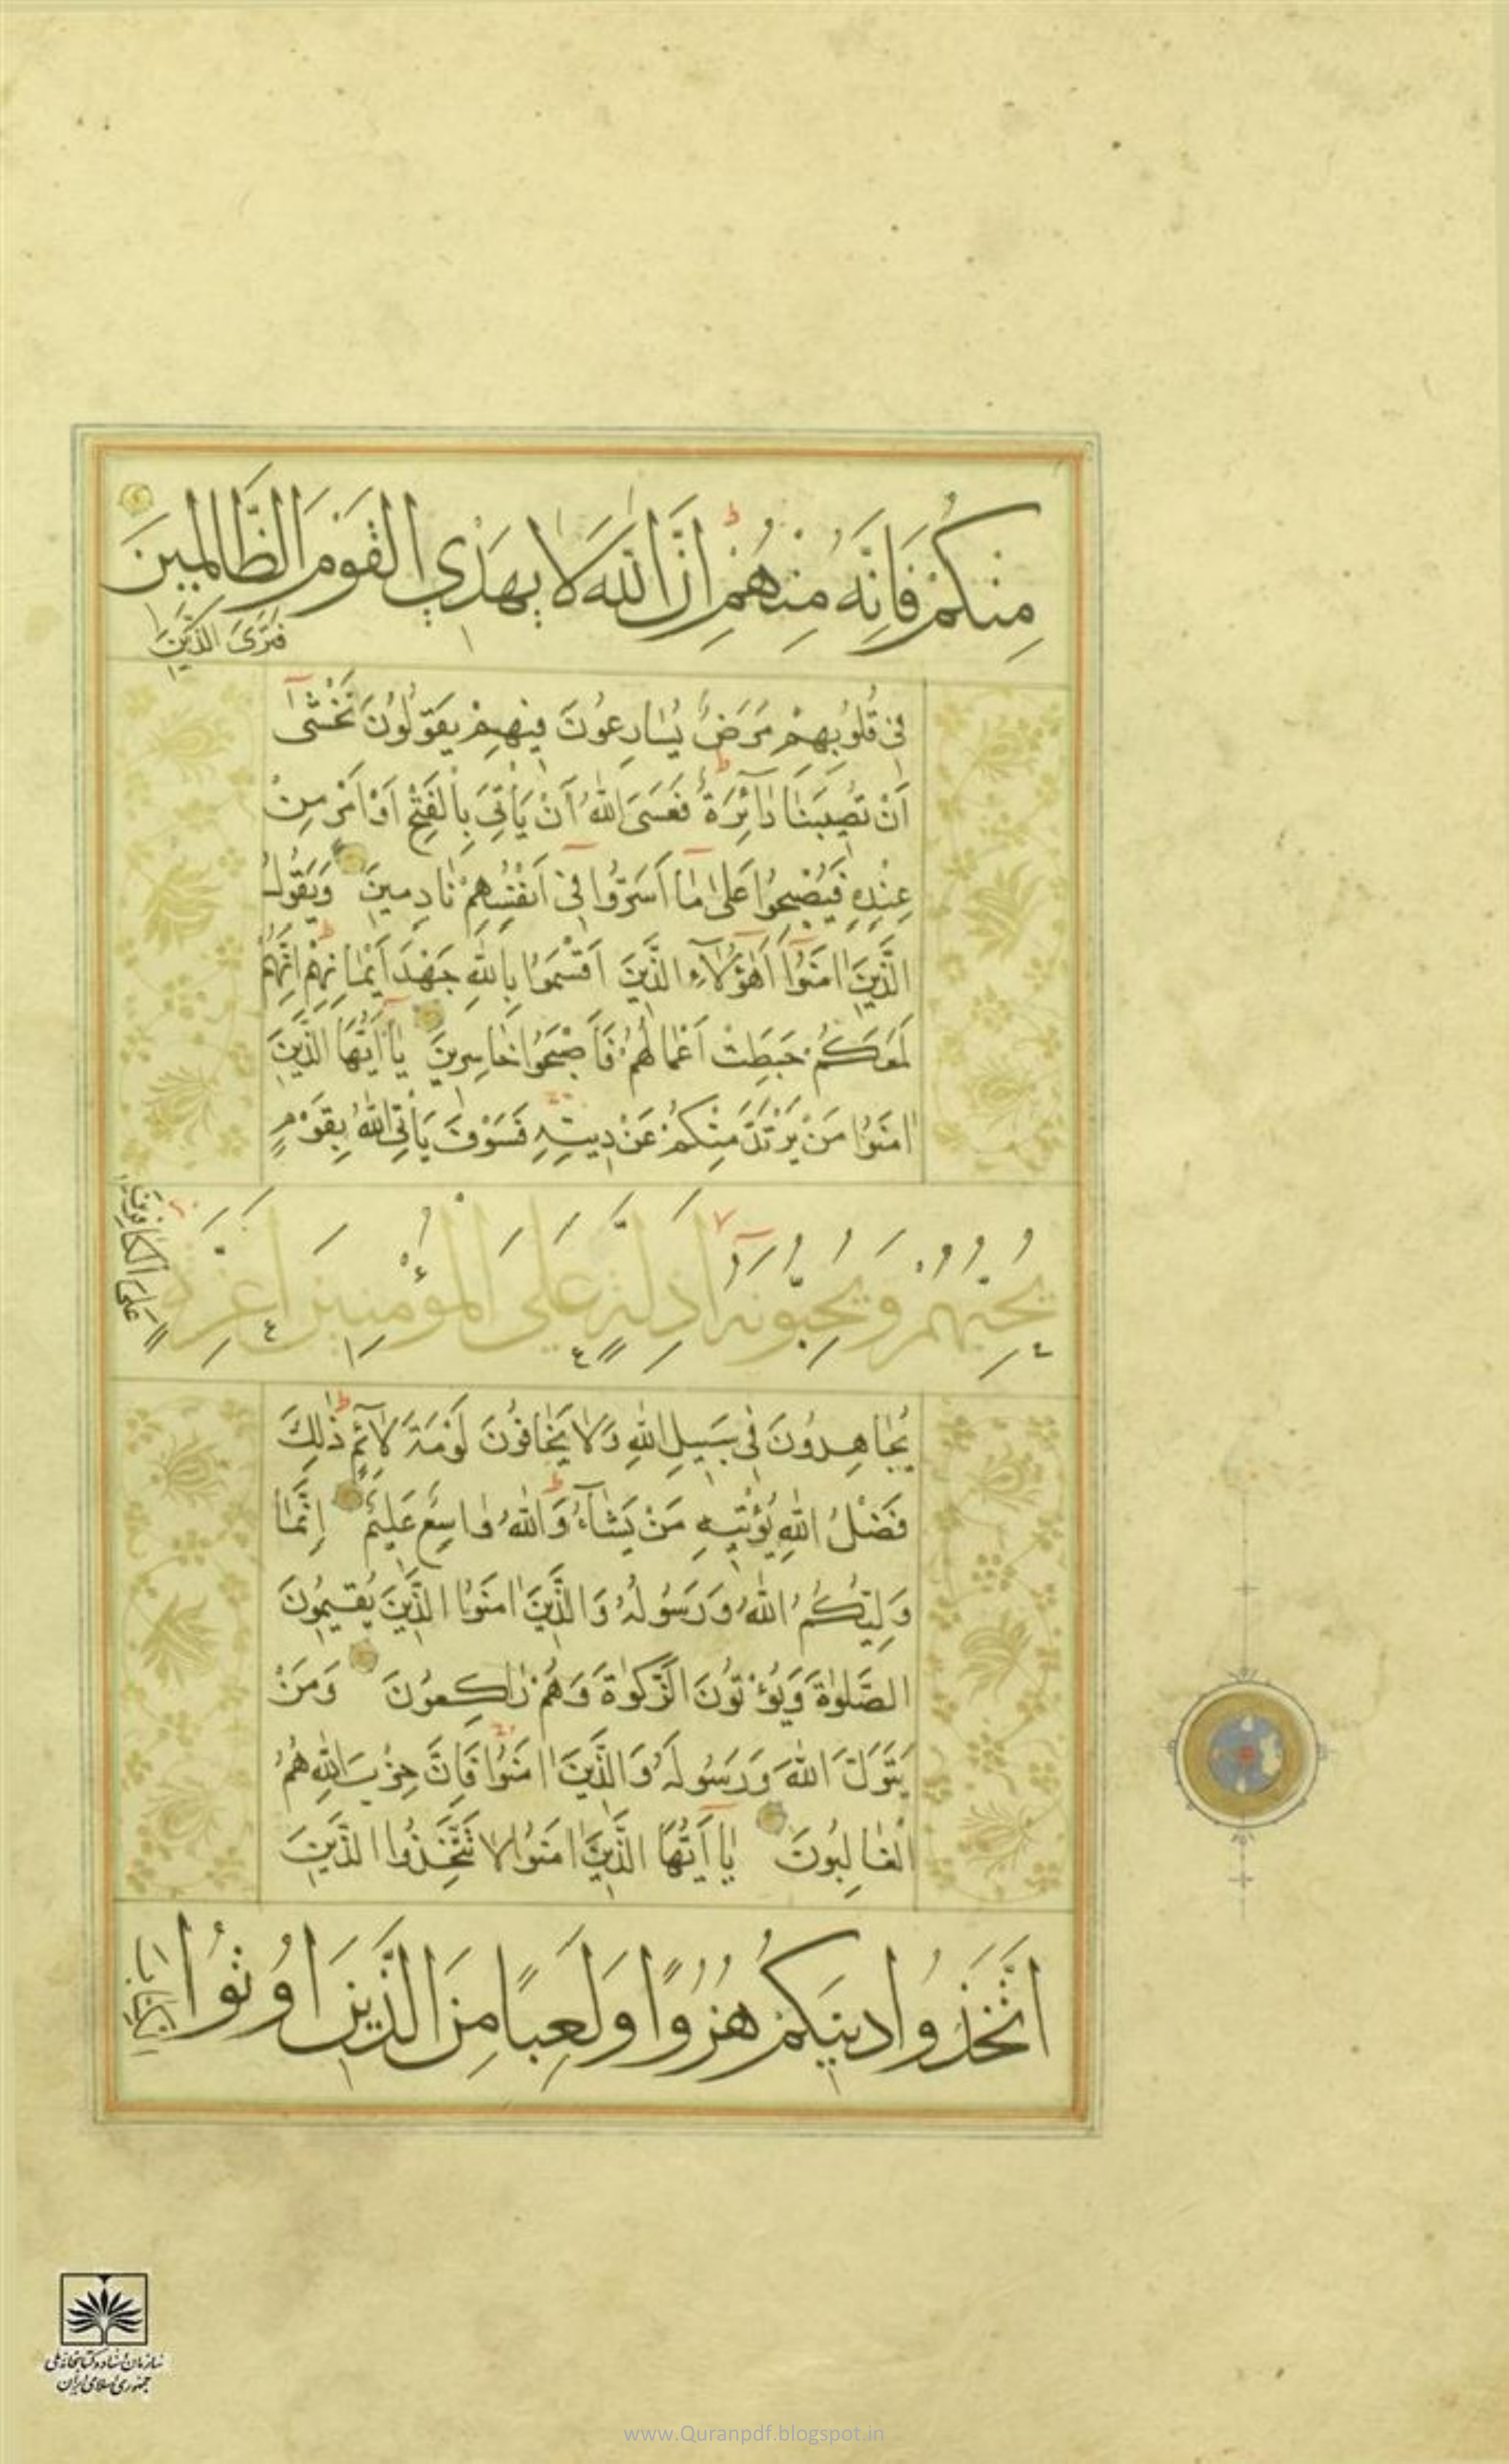 مِنْكُمْ فَاِنَّهُ مِنْهُمْ اِنَّ اللّٰهَ لَا يَهْدِي الْقَوْمَ الظَّالِمِينَ
فَتَرَى الَّذِينَ
فِي قُلُوبِهِمْ مَرَضٌ يُسَارِعُونَ فِيهِمْ يَقُولُونَ نَخْشٰى
اَنْ تُصِيبَنَا دَآئِرَةٌ فَعَسَى اللّٰهُ اَنْ يَأْتِيَ بِالْفَتْحِ اَوْ اَمْرٍ مِنْ
عِنْدِهِ فَيُصْبِحُوا عَلٰى مَا اَسَرُّوا فِي اَنْفُسِهِمْ نَادِمِينَ وَيَقُولُ
الَّذِينَ اٰمَنُوا اَهٰؤُلَآءِ الَّذِينَ اَقْسَمُوا بِاللّٰهِ جَهْدَ اَيْمَانِهِمْ اِنَّهُمْ
لَمَعَكُمْ حَبِطَتْ اَعْمَالُهُمْ فَاَصْبَحُوا خَاسِرِينَ يَا اَيُّهَا الَّذِينَ
اٰمَنُوا مَنْ يَرْتَدَّ مِنْكُمْ عَنْ دِينِهِ فَسَوْفَ يَأْتِي اللّٰهُ بِقَوْمٍ
يُحِبُّهُمْ وَيُحِبُّونَهُ اَذِلَّةٍ عَلَى الْمُؤْمِنِينَ اَعِزَّةٍ
عَلَى الْكَافِرِينَ
يُجَاهِدُونَ فِي سَبِيلِ اللّٰهِ وَلَا يَخَافُونَ لَوْمَةَ لَآئِمٍ ذٰلِكَ
فَضْلُ اللّٰهِ يُؤْتِيهِ مَنْ يَشَآءُ وَاللّٰهُ وَاسِعٌ عَلِيمٌ اِنَّمَا
وَلِيُّكُمُ اللّٰهُ وَرَسُولُهُ وَالَّذِينَ اٰمَنُوا الَّذِينَ يُقِيمُونَ
الصَّلٰوةَ وَيُؤْتُونَ الزَّكٰوةَ وَهُمْ رَاكِعُونَ وَمَنْ
يَتَوَلَّ اللّٰهَ وَرَسُولَهُ وَالَّذِينَ اٰمَنُوا فَاِنَّ حِزْبَ اللّٰهِ هُمُ
الْغَالِبُونَ يَا اَيُّهَا الَّذِينَ اٰمَنُوا لَا تَتَّخِذُوا الَّذِينَ
اتَّخَذُوا دِينَكُمْ هُزُوًا وَلَعِبًا مِنَ الَّذِينَ اُوتُوا
الْكِتَابَ
سازمان اسناد و کتابخانه ملی
جمهوری اسلامی ایران
www.Quranpdf.blogspot.in